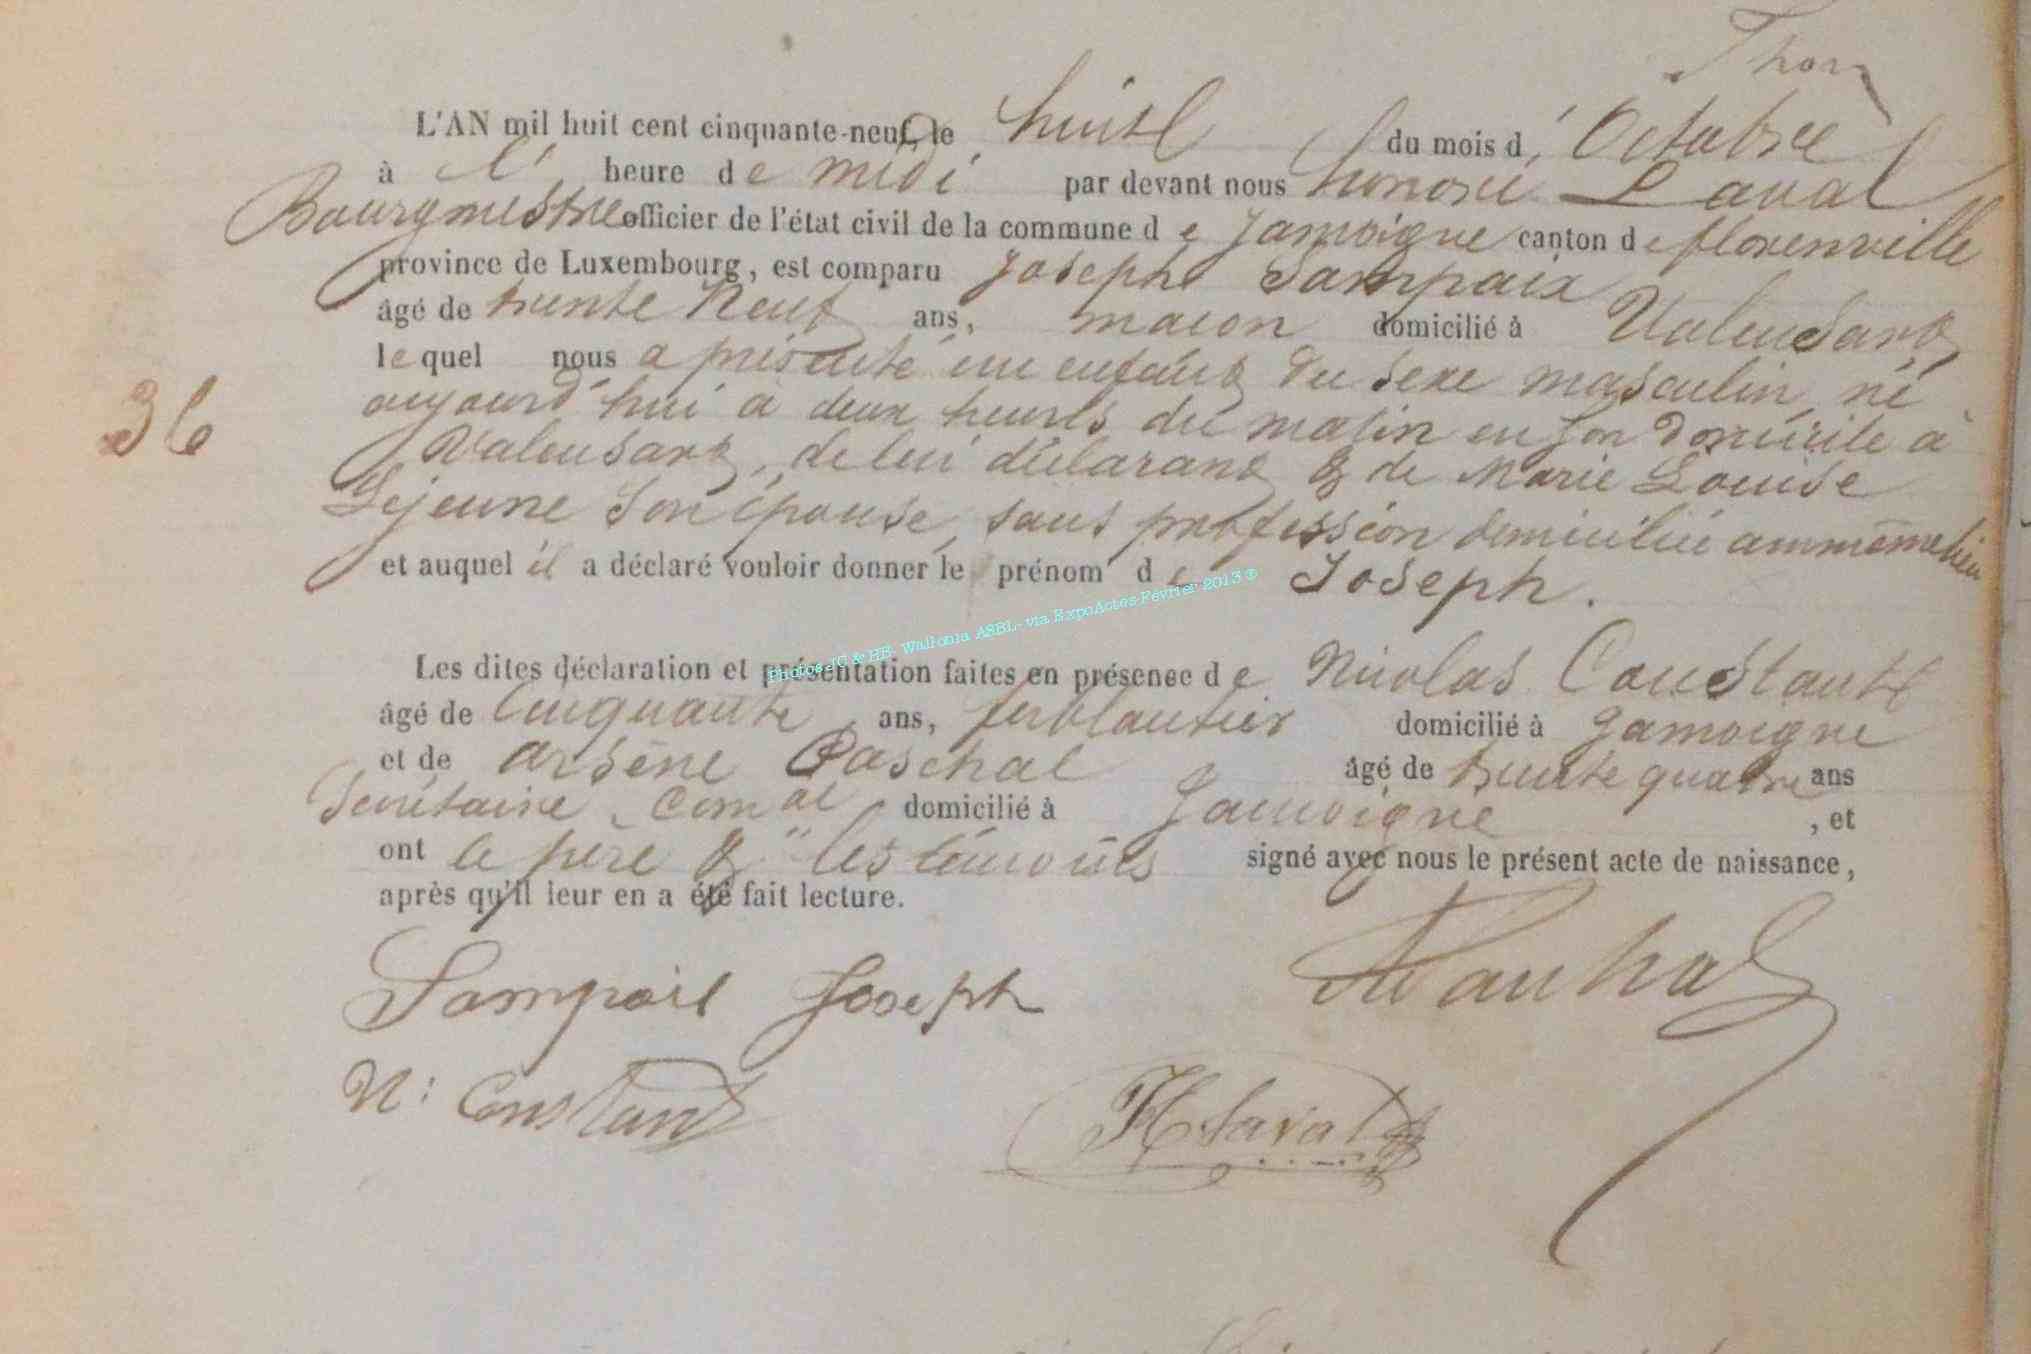 L'AN mil huit cent cinquante-neuf, le huit du mois d'Octobre
à l' heure de midi par devant nous honoré Laval
Bourgmestre officier de l'état civil de la commune de Jamoigne canton de florenville
province de Luxembourg, est comparu Joseph Sampaix
âgé de trente neuf ans, macon domicilié à Valensart
lequel nous a présenté un enfant du sexe masculin, né
36
aujourd'hui à deux heures du matin en son domicile à
Valensart, de lui déclarant & de Marie Louise
Lejeune son épouse, sans proffession domiciliée aummême lieu
et auquel il a déclaré vouloir donner le prénom de Joseph.
Photos JG & HB- Wallonia ASBL- via ExpoActes-Février 2013 ®
Les dites déclaration et présentation faites en présence de Nicolas Constant
âgé de Cinquante ans, ferblantier domicilié à Jamoigne
et de arsène Paschal âgé de trente quatre ans
Secrétaire Comal domicilié à Jamoigne, et
ont le père & les témoins signé avec nous le présent acte de naissance,
après qu'il leur en a été fait lecture.
Sampaix Joseph
N: Constant
H Laval